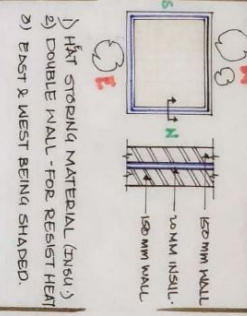 S
W
N
E
150 MM WALL
20 MM INSUL.
150 MM WALL
1) HAT STORING MATERIAL (INSU.)
2) DOUBLE WALL - FOR RESIST HEAT
3) EAST & WEST BEING SHADED.